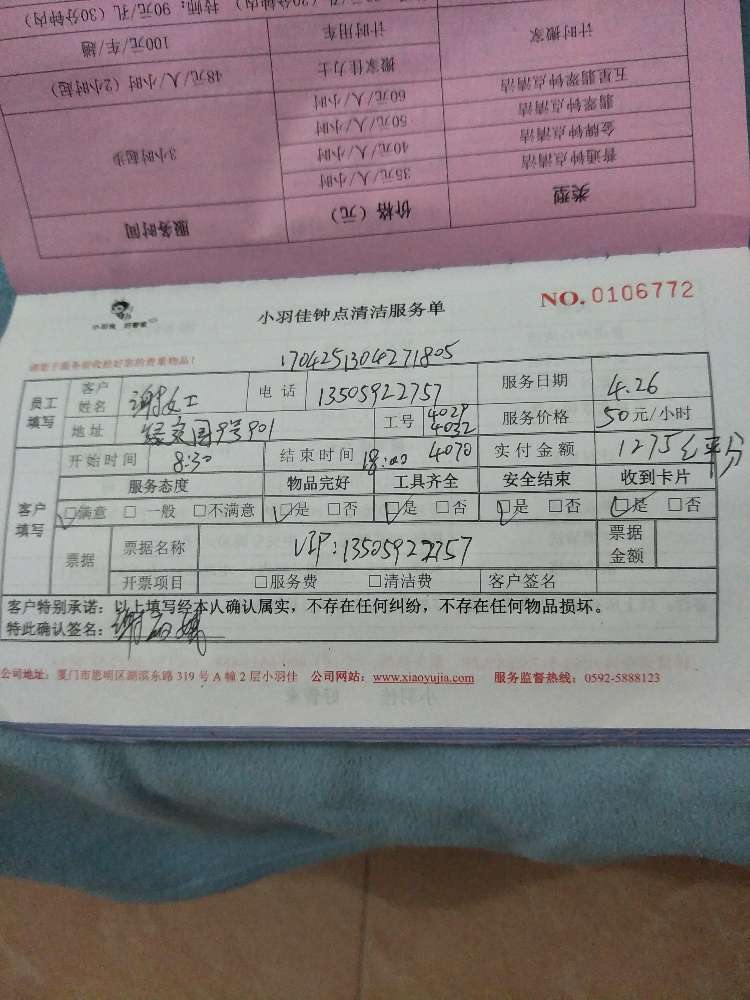 技师：90元/孔（30分钟内）
计时搬家 计时用车 100元/车/趟
搬家佳力士 48元/人/小时（2小时起）
五星翡翠钟点清洁 60元/人/小时
翡翠钟点清洁 50元/人/小时 3小时起步
金牌钟点清洁 40元/人/小时
普通钟点清洁 35元/人/小时
类型 价格（元） 服务时间
小羽佳 好管家
小羽佳钟点清洁服务单
NO. 0106772
请您于服务前收拾好您的贵重物品！
1704251304271805
员工填写 客户姓名 谢女士 电话 13505922757 服务日期 4.26
地址 9号901 工号 4029 4032 4070 服务价格 50元/小时
客户填写 开始时间 8:30 结束时间 18:00 实付金额 1275 平分
服务态度 物品完好 工具齐全 安全结束 收到卡片
□满意 □一般 □不满意 □是 □否 □是 □否 □是 □否 □是 □否
票据 票据名称 VIP:13505922757 票据金额
开票项目 □服务费 □清洁费 客户签名
客户特别承诺：以上填写经本人确认属实，不存在任何纠纷，不存在任何物品损坏。
特此确认签名：谢
公司地址：厦门市思明区湖滨东路319号A幢2层小羽佳 公司网站：www.xiaoyujia.com 服务监督热线：0592-5888123